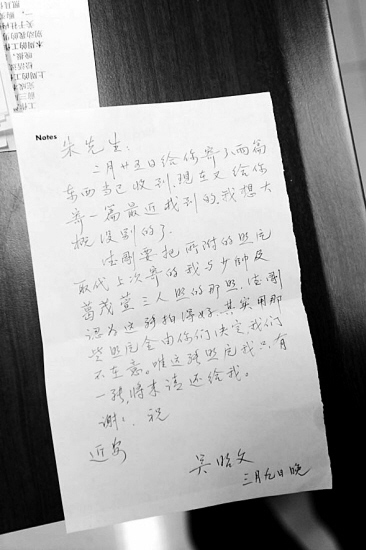 Notes
朱先生：
二月廿五日给你寄了两篇
东西当已收到。现在又给你
寄一篇最近找到的。我想大
概没别的了。
德剛要把所附的照片
取代上次寄的我与少帅及
葛茂萱三人照的那照。德剛
认为这张拍得好。其实用那
些照片全由你们决定我们
不在意。唯这张照片我只有
一张，将来请还给我。
谢谢。祝
近安
吴昭文
三月九日晚